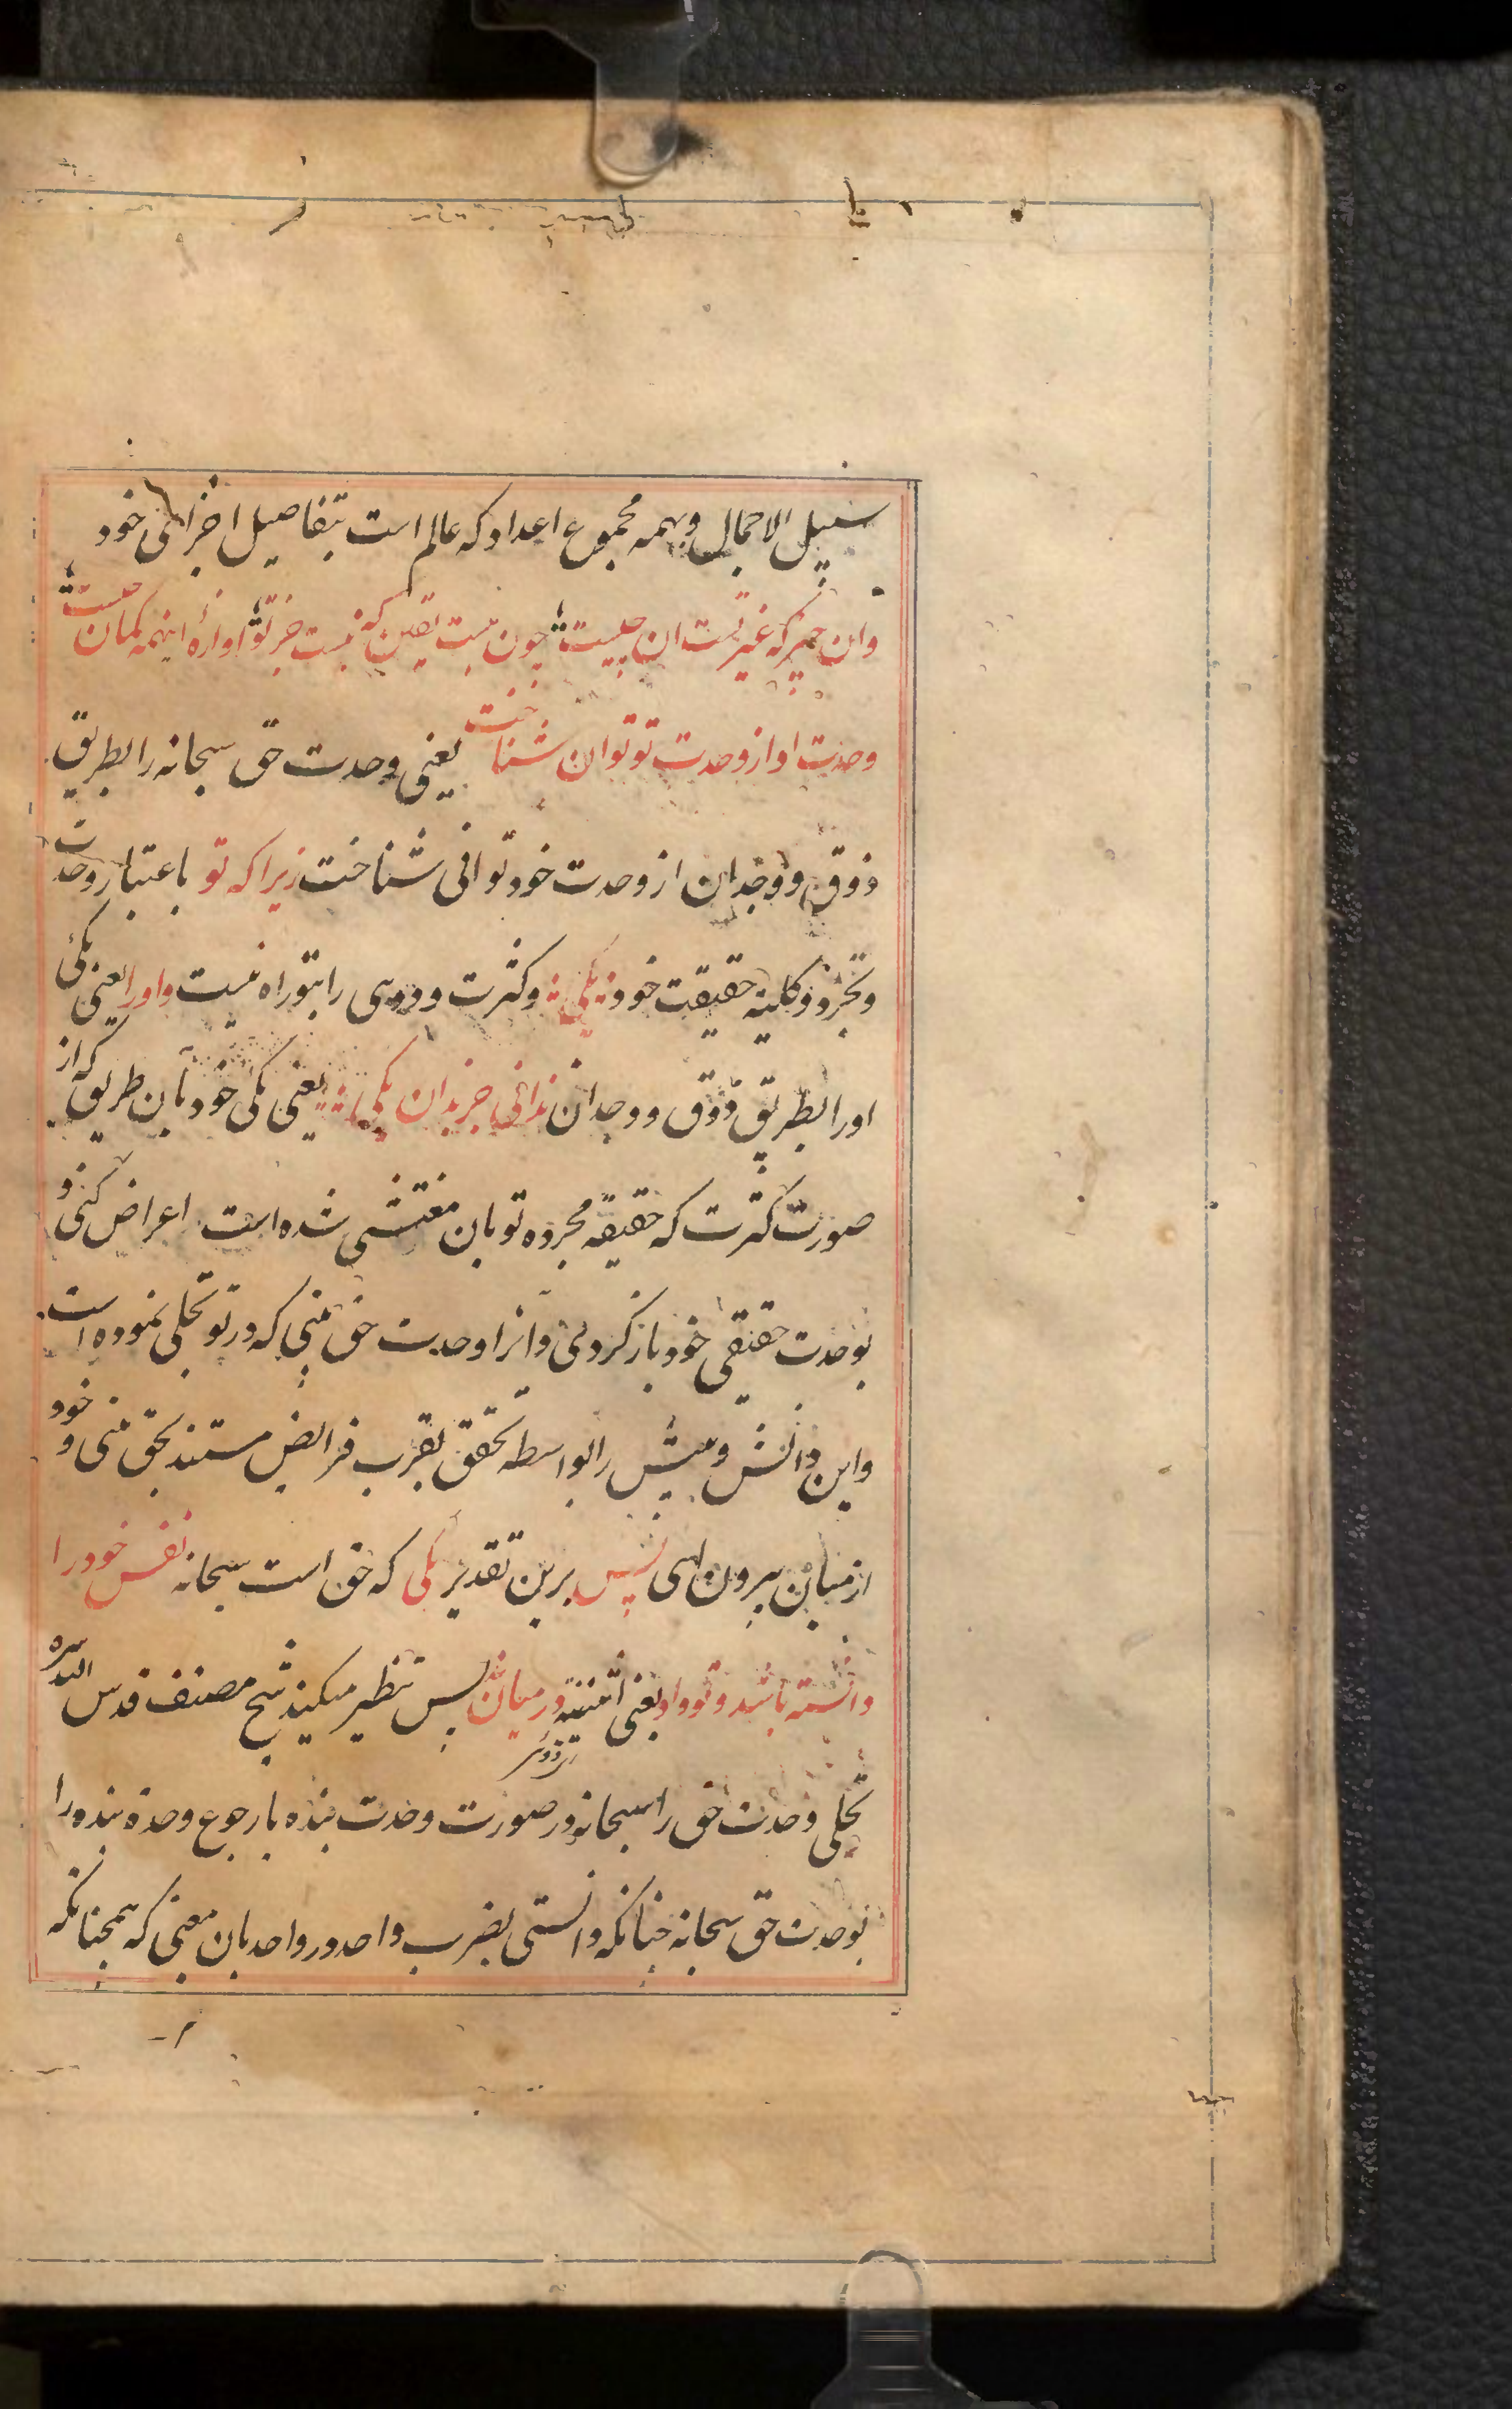 سبیل الاجمال و همه مجموع اعداد که عالم است بتفاصیل اجزای خود
وان چیز که غیر تست ان چیست چون نیست یقین که نیست جز تو اوازهٔ اینهمه کمان چیست
وحدت او از وحدت تو توان شناخت یعنی وحدت حق سبحانه را بطریق
ذوق و وجدان از وحدت خود توانی شناخت زیرا که تو باعتبار وحدت
و تجرد و کلیه حقیقت خود یکی و کثرت و دویی را بتو راه نیست و او را یعنی یکی
او را بطریق ذوق و وجدان ندانی جز بدان یکی یعنی یکی خود بان طریق که از
صورت کثرت که حقیقه مجرده تو بان مغتشی شده است اعراض کنی و
بوحدت حقیقی خود باز کردی و انرا وحدت حق بینی که در تو تجلی نموده است
و این دانش و بینش را بواسطه تحقق بقرب فرایض مستند بحق بینی و خود
از میان بیرون ایی پس برین تقدیر یکی که حق است سبحانه نفس خود را
دانسته باشد و تو و او یعنی اثنینیه در میان نه پس تنظیر میکند شیخ مصنف قدس الله سره
تجلی وحدت حق را سبحانه در صورت وحدت بنده با رجوع وحدة بنده را
بوحدت حق سبحانه چنانکه دانستی بضرب واحد در واحد بان معنی که همچنانکه